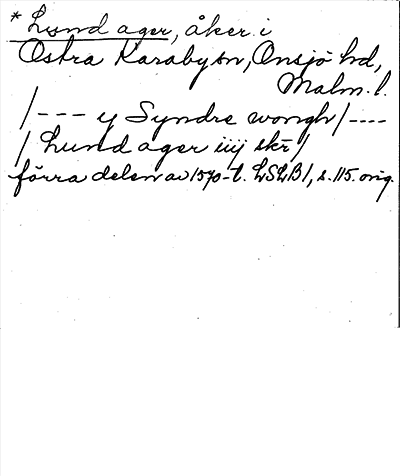 * Lund ager, åker i
Östra Karaby sn, Onsjö hd,
Malm. l.
/--- y Syndre wongh/----
/ Lund ager iiij skr/
förra delen av 1570-t. LSLB1, s. 115. orig.